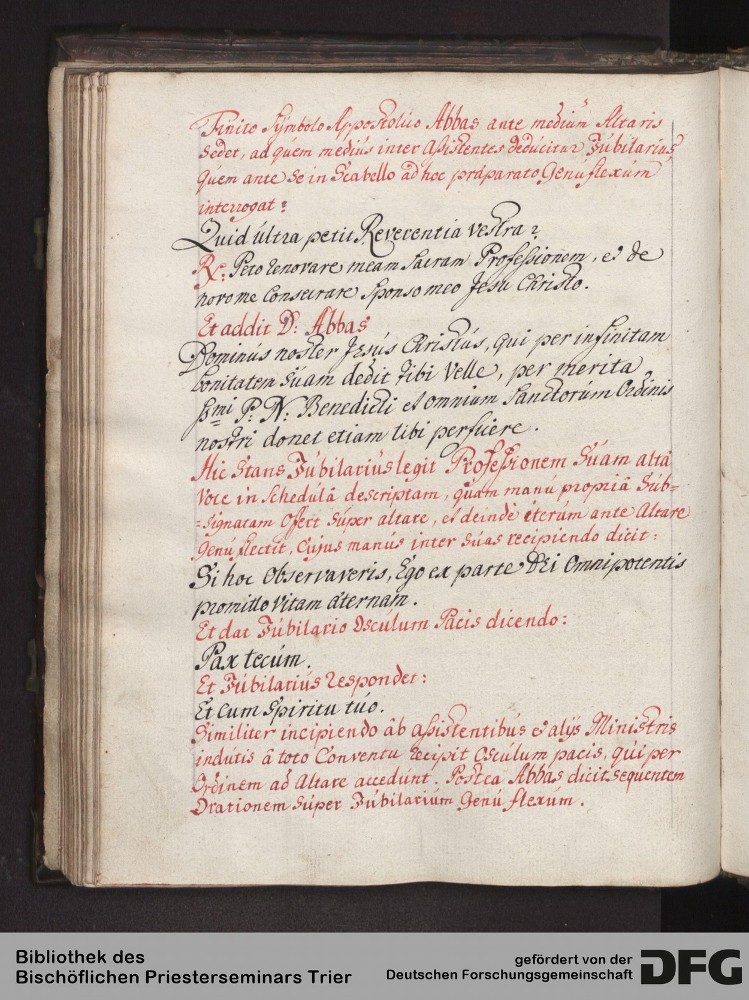 Finito Sÿmbolo Appostolico Abbas ante mediũ Altaris
Sedet, ad quem mediús inter assistentes deducitur Júbilariús,
quem ante se in Scabello ad hoc præparato Genúflexúm
interrogat:
Quid últra petit Reverentia vestra?
R: Peto renovare meam Sacram Professionem, et de
novo me Consecrare Sponso meo Jesu Christo.
Et addit D: Abbas
Dominús noster Jesús Christús, qui per infinitam
bonitatem Suam dedit tibi Velle, per merita
ss=mi P: N: Benedicti et omnium Sanctorúm Ordinis
nostri donet etiam tibi perficere.
Hic Stans Júbilariús legit Professionem Súam altâ
Voce in Schedúlâ descriptam, quam manú propriâ Súb=
=signatam offert súper altare, et deinde iterúm ante Altare
Genú flectit, Cujus manús inter Súas recipiendo dicit:
Si hoc Observaveris, Ego ex parte DEi Omnipotentis
promitto Vitam æternam.
Et dat Júbilario Oscúlum Pacis dicendo:
Pax tecúm.
Et Júbilariús respondet:
Et Cum Spiritu túo.
Similiter incipiendo âb assistentibús et alÿs Ministris
indútis â toto Conventu recipit Oscúlum pacis, qúi per
Ordinem ad Altare accedúnt. Postea Abbas dicit sequentem
Orationem Súper Júbilariúm Genú flexúm.
Bibliothek des
Bischöflichen Priesterseminars Trier
gefördert von der
Deutschen Forschungsgemeinschaft
DFG